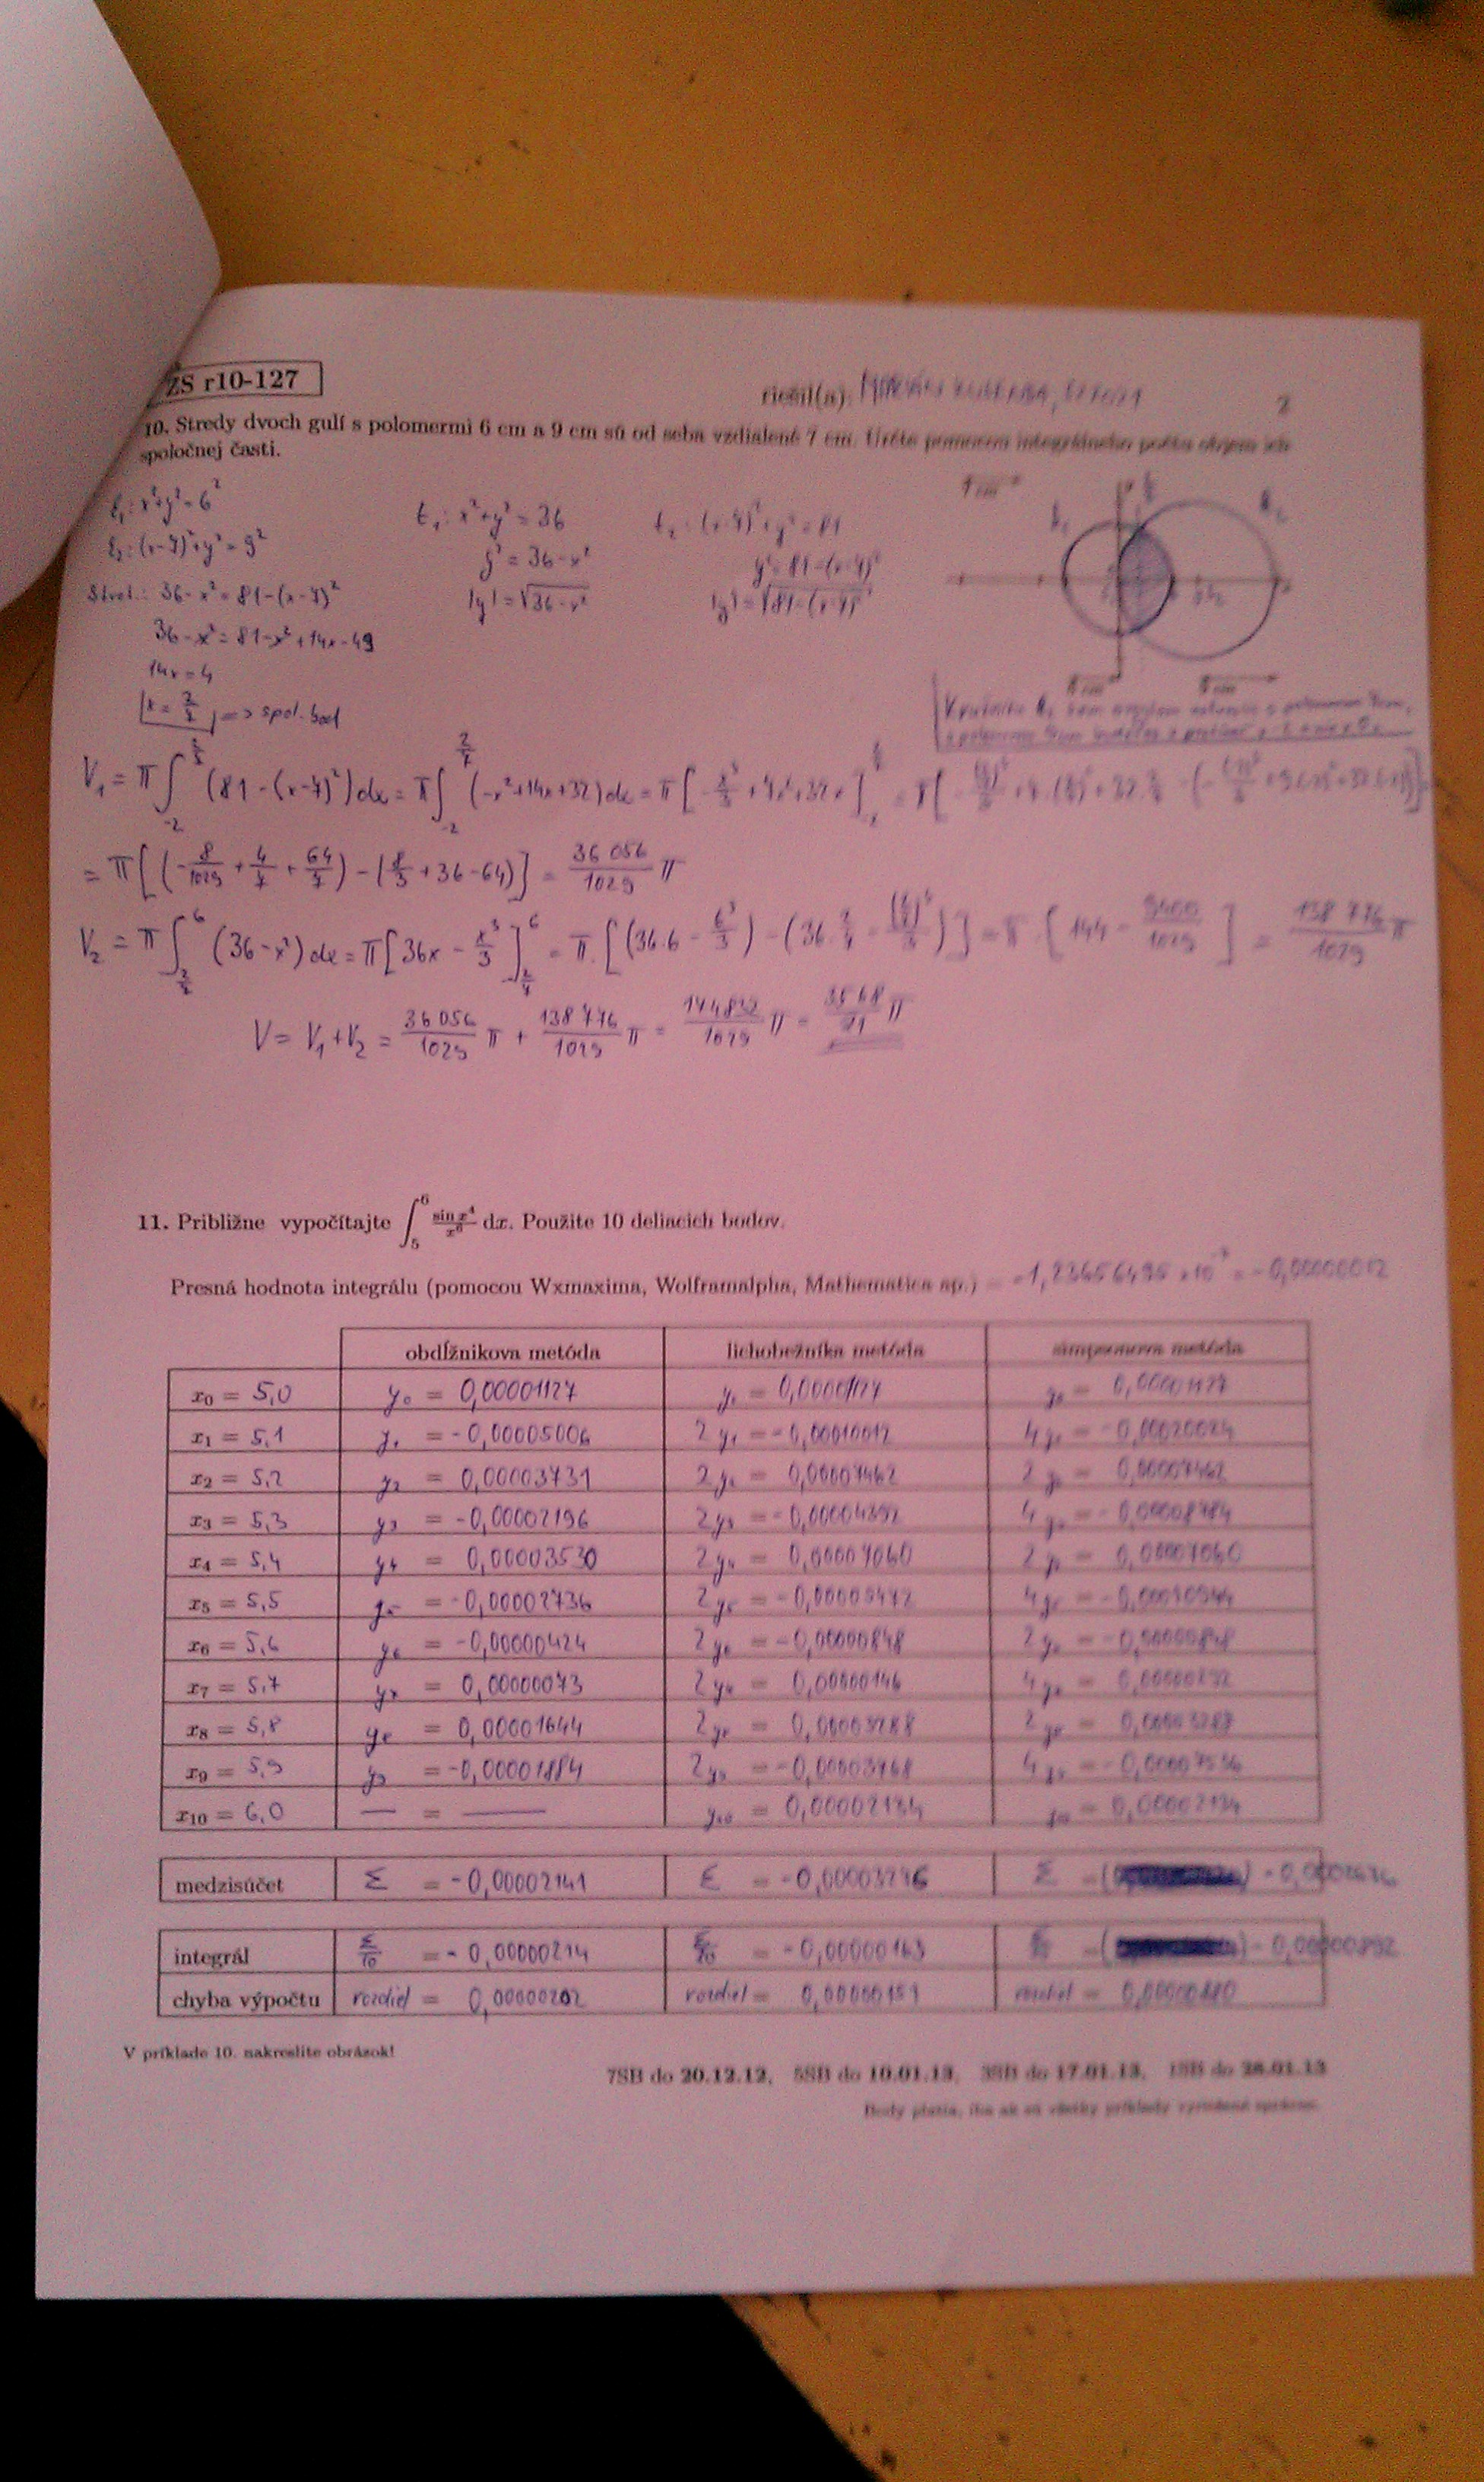 ZS r10-127
riešil(a): 2
10. Stredy dvoch gulí s polomermi 6 cm a 9 cm sú od seba vzdialené 7 cm. Určte pomocou integrálneho počtu objem ich
spoločnej časti.
k₁: x²+y²=6²
k₂: (x-7)²+y²=9²
36-x²=81-(x-7)²
36-x²=81-x²+14x-49
14x=4
x=2/7 => spol. bod
k₁: x²+y²=36
y²=36-x²
|y|=√36-x²
k₂: (x-7)²+y²=81
y²=81-(x-7)²
|y|=√81-(x-7)²
V₁ = π∫ (81-(x-7)²)dx = π∫ (-x²+14x+32)dx = π[-x³/3+7x²+32x]
= π[(-8/1029+4/7+64/7)-(8/3+36-64)] = 36 056/1029 π
V₂ = π∫ (36-x²)dx = π[36x-x³/3] = π.[(36.6-6³/3)-(36.2/7-(2/7)³/3)] = π.[144- /1029] = 138 776/1029 π
V = V₁+V₂ = 36 056/1029 π + 138 776/1029 π = 174 832/1029 π = 3568/21 π
11. Približne vypočítajte ∫₅⁶ sin x⁴/x⁶ dx. Použite 10 deliacich bodov.
Presná hodnota integrálu (pomocou Wxmaxima, Wolframalpha, Mathematica ap.) = -0,00000012
obdĺžnikova metóda lichobežníka metóda simpsonova metóda
x₀ = 5,0 y₀ = 0,00001127 y₀ = 0,00001127 y₀ = 0,00001127
x₁ = 5,1 y₁ = -0,00005006 2y₁ = -0,00010012 4y₁ = -0,00020024
x₂ = 5,2 y₂ = 0,00003731 2y₂ = 0,00007462 2y₂ = 0,00007462
x₃ = 5,3 y₃ = -0,00002196 2y₃ = -0,00004392 4y₃ = -0,00008784
x₄ = 5,4 y₄ = 0,00003530 2y₄ = 0,00007060 2y₄ = 0,00007060
x₅ = 5,5 y₅ = -0,00002736 2y₅ = -0,00005472 4y₅ = -0,00010944
x₆ = 5,6 y₆ = -0,00000424 2y₆ = -0,00000848 2y₆ = -0,00000848
x₇ = 5,7 y₇ = 0,00000073 2y₇ = 0,00000146 4y₇ = 0,00000292
x₈ = 5,8 y₈ = 0,00001644 2y₈ = 0,00003288 2y₈ =
x₉ = 5,9 y₉ = -0,00001884 2y₉ = -0,00003768 4y₉ = -0,00007536
x₁₀ = 6,0 — = — y₁₀ = 0,00002134 y₁₀ = 0,00002134
medzisúčet Σ = -0,00002141 Σ = Σ =
integrál Σ/10 = -0,00000214 = -0,00000163 = -0,00000892
chyba výpočtu rozdiel = 0,00000202 rozdiel = 0,00000151 rozdiel = 0,00000880
V príklade 10. nakreslite obrázok!
7SB do 20.12.12, 5SB do 10.01.13, 3SB do 17.01.13, 1SB do 24.01.13
Body platia, iba ak sú všetky príklady vyriešené správne.